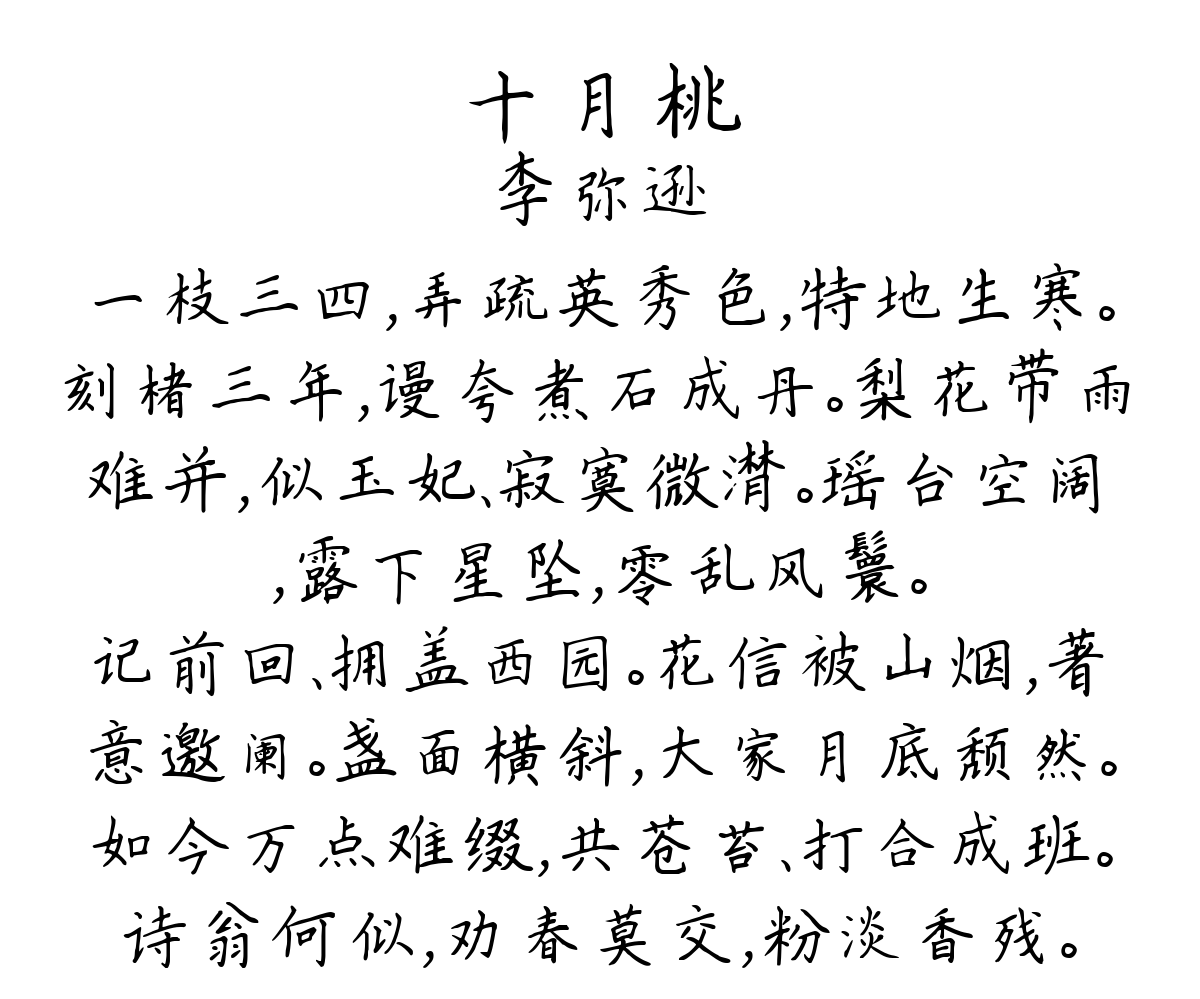 十月桃
李弥逊
一枝三四,弄疏英秀色,特地生寒。
刻楮三年,谩夸煮石成丹。梨花带雨
难并,似玉妃、寂寞微潸。瑶台空阔
,露下星坠,零乱风鬟。
记前回、拥盖西园。花信被山烟,著
意邀阑。盏面横斜,大家月底颓然。
如今万点难缀,共苍苔、打合成班。
诗翁何似,劝春莫交,粉淡香残。